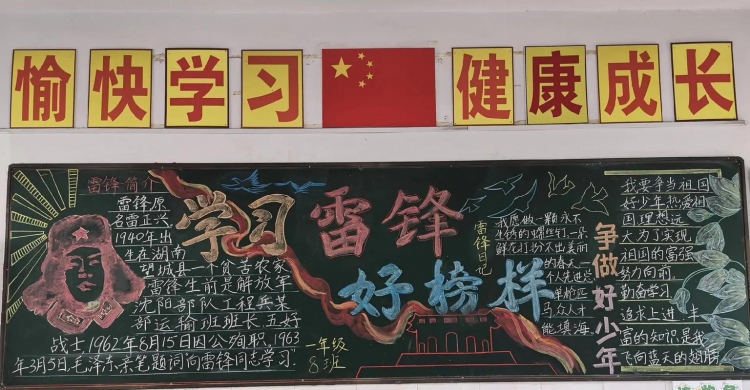 愉快学习
健康成长
雷锋·简介
雷锋原
名雷正兴
1940年出
生在湖南
望城县一个贫苦农家
雷锋生前是解放军
沈阳部队工程兵某
部运输班班长、五好
战士1962年8月15日因公殉职、1963
年3月5日毛泽东亲笔题词向雷锋同志学习"
学习
雷锋
好榜样
一年级
8班
雷锋日记
我愿做一颗永不
生锈的螺丝钉一朵
鲜花打扮不出美丽
的春天一
个人先进只
是单枪匹
马众人才
能填海
争做好少年
我要争当祖国
好少年热爱祖
国理想远
大为了实现
祖国的富强
努力向前。
勤奋学习
追求上进丰
富的知识是我
飞向蓝天的翅膀